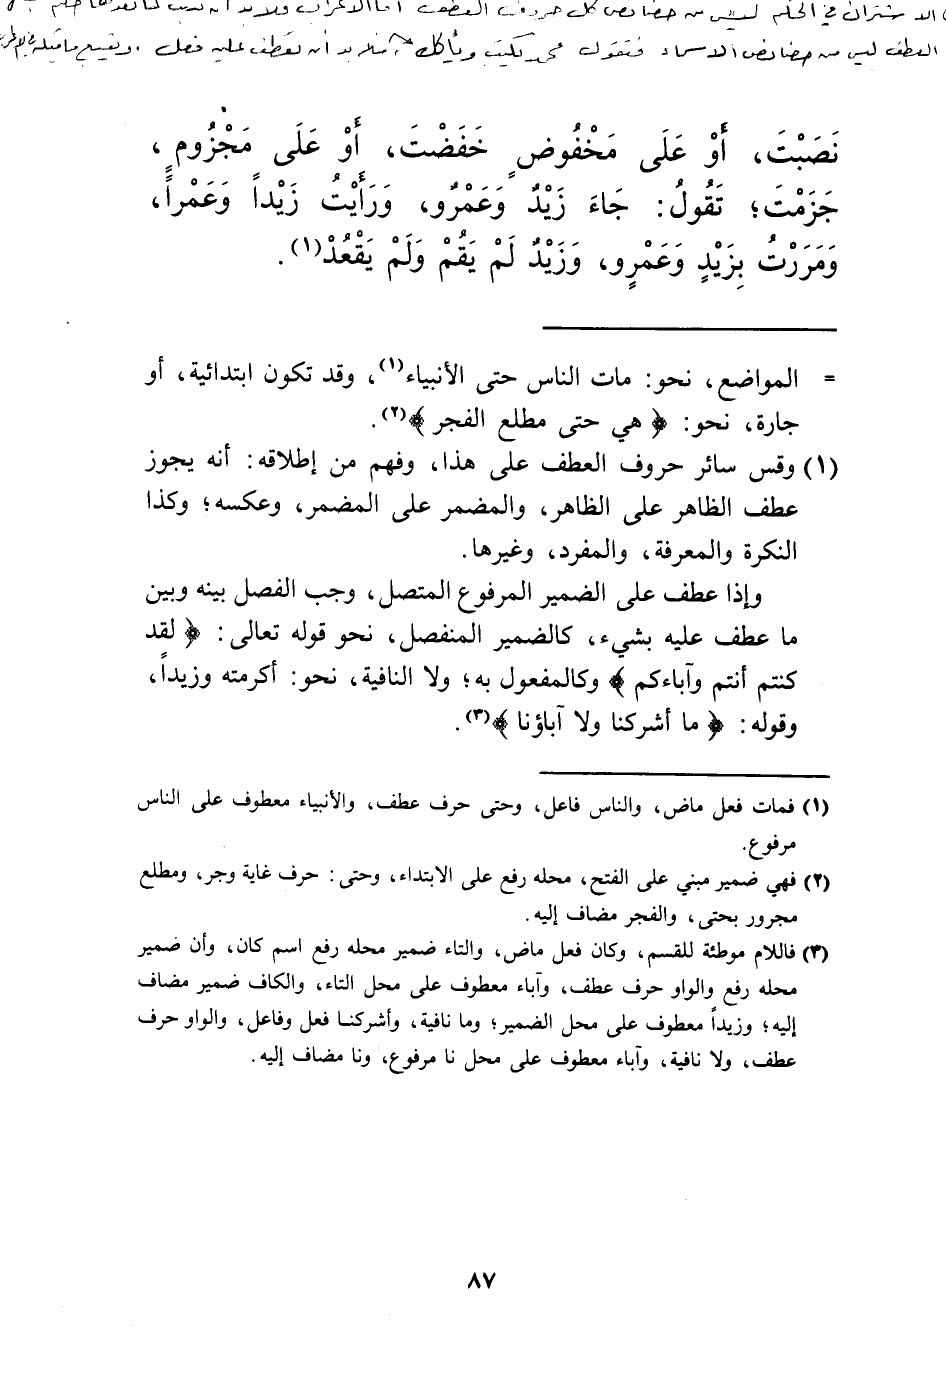 الاشتراك في الحكم ليس من خصائص كل حروف العطف
العطف ليس من خصائص الاسماء فتقول محمد يكتب ويأكل فلا بد ان تعطف على فعل
نَصَبْتَ، أَوْ عَلَى مَخْفُوضٍ خَفَضْتَ، أَوْ عَلَى مَجْزُومٍ،
جَزَمْتَ؛ تَقُولُ: جَاءَ زَيْدٌ وَعَمْرٌو، وَرَأَيْتُ زَيْداً وَعَمْراً،
وَمَرَرْتُ بِزَيْدٍ وَعَمْرٍو، وَزَيْدٌ لَمْ يَقُمْ وَلَمْ يَقْعُدْ(١).
= المواضع، نحو: مات الناس حتى الأنبياء(١)، وقد تكون ابتدائية، أو
جارة، نحو: ﴿ هي حتى مطلع الفجر ﴾(٢).
(١) وقس سائر حروف العطف على هذا، وفهم من إطلاقه: أنه يجوز
عطف الظاهر على الظاهر، والمضمر على المضمر، وعكسه؛ وكذا
النكرة والمعرفة، والمفرد، وغيرها.
وإذا عطف على الضمير المرفوع المتصل، وجب الفصل بينه وبين
ما عطف عليه بشيء، كالضمير المنفصل، نحو قوله تعالى: ﴿ لقد
كنتم أنتم وآباءكم ﴾ وكالمفعول به؛ ولا النافية، نحو: أكرمته وزيداً،
وقوله: ﴿ ما أشركنا ولا آباؤنا ﴾(٣).
(١) فمات فعل ماض، والناس فاعل، وحتى حرف عطف، والأنبياء معطوف على الناس
مرفوع.
(٢) فهي ضمير مبني على الفتح، محله رفع على الابتداء، وحتى: حرف غاية وجر، ومطلع
مجرور بحتى، والفجر مضاف إليه.
(٣) فاللام موطئة للقسم، وكان فعل ماض، والتاء ضمير محله رفع اسم كان، وأن ضمير
محله رفع والواو حرف عطف، وآباء معطوف على محل التاء، والكاف ضمير مضاف
إليه؛ وزيداً معطوف على محل الضمير؛ وما نافية، وأشركنا فعل وفاعل، والواو حرف
عطف، ولا نافية، وآباء معطوف على محل نا مرفوع، ونا مضاف إليه.
٨٧